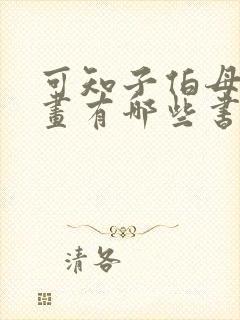 可知子伯母
畫有哪些書
清各